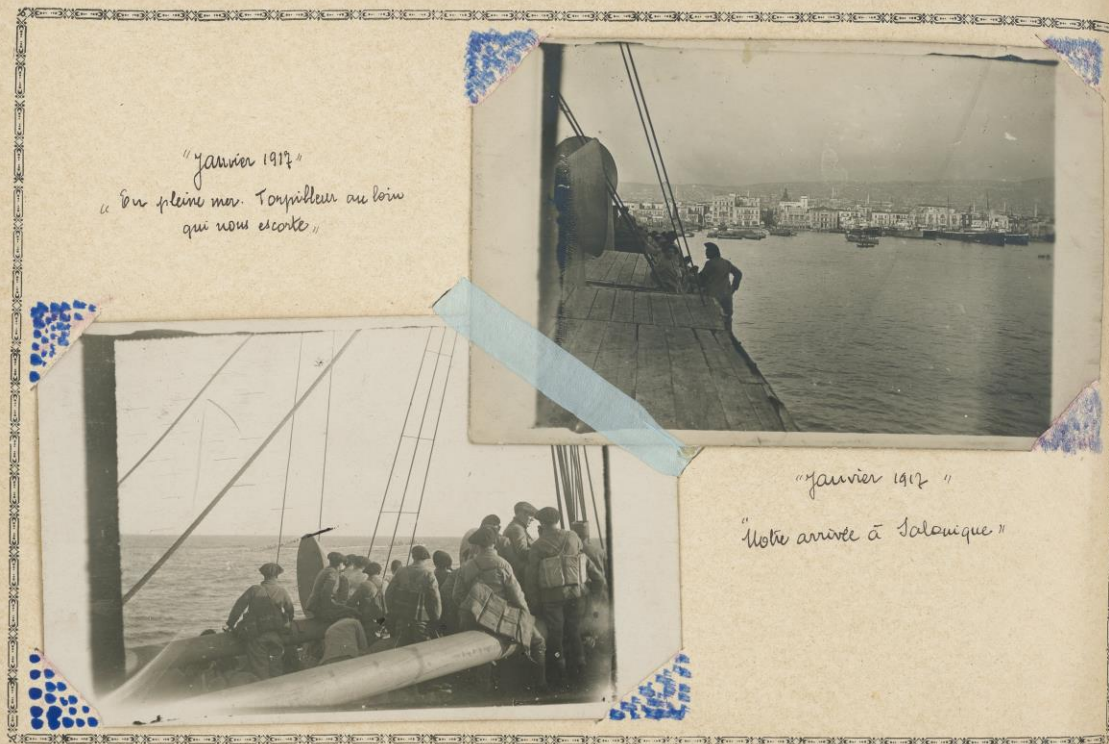 "Janvier 1917"
"En pleine mer. Torpilleur au loin
qui nous escorte"
"Janvier 1917"
"Notre arrivée à Salonique"